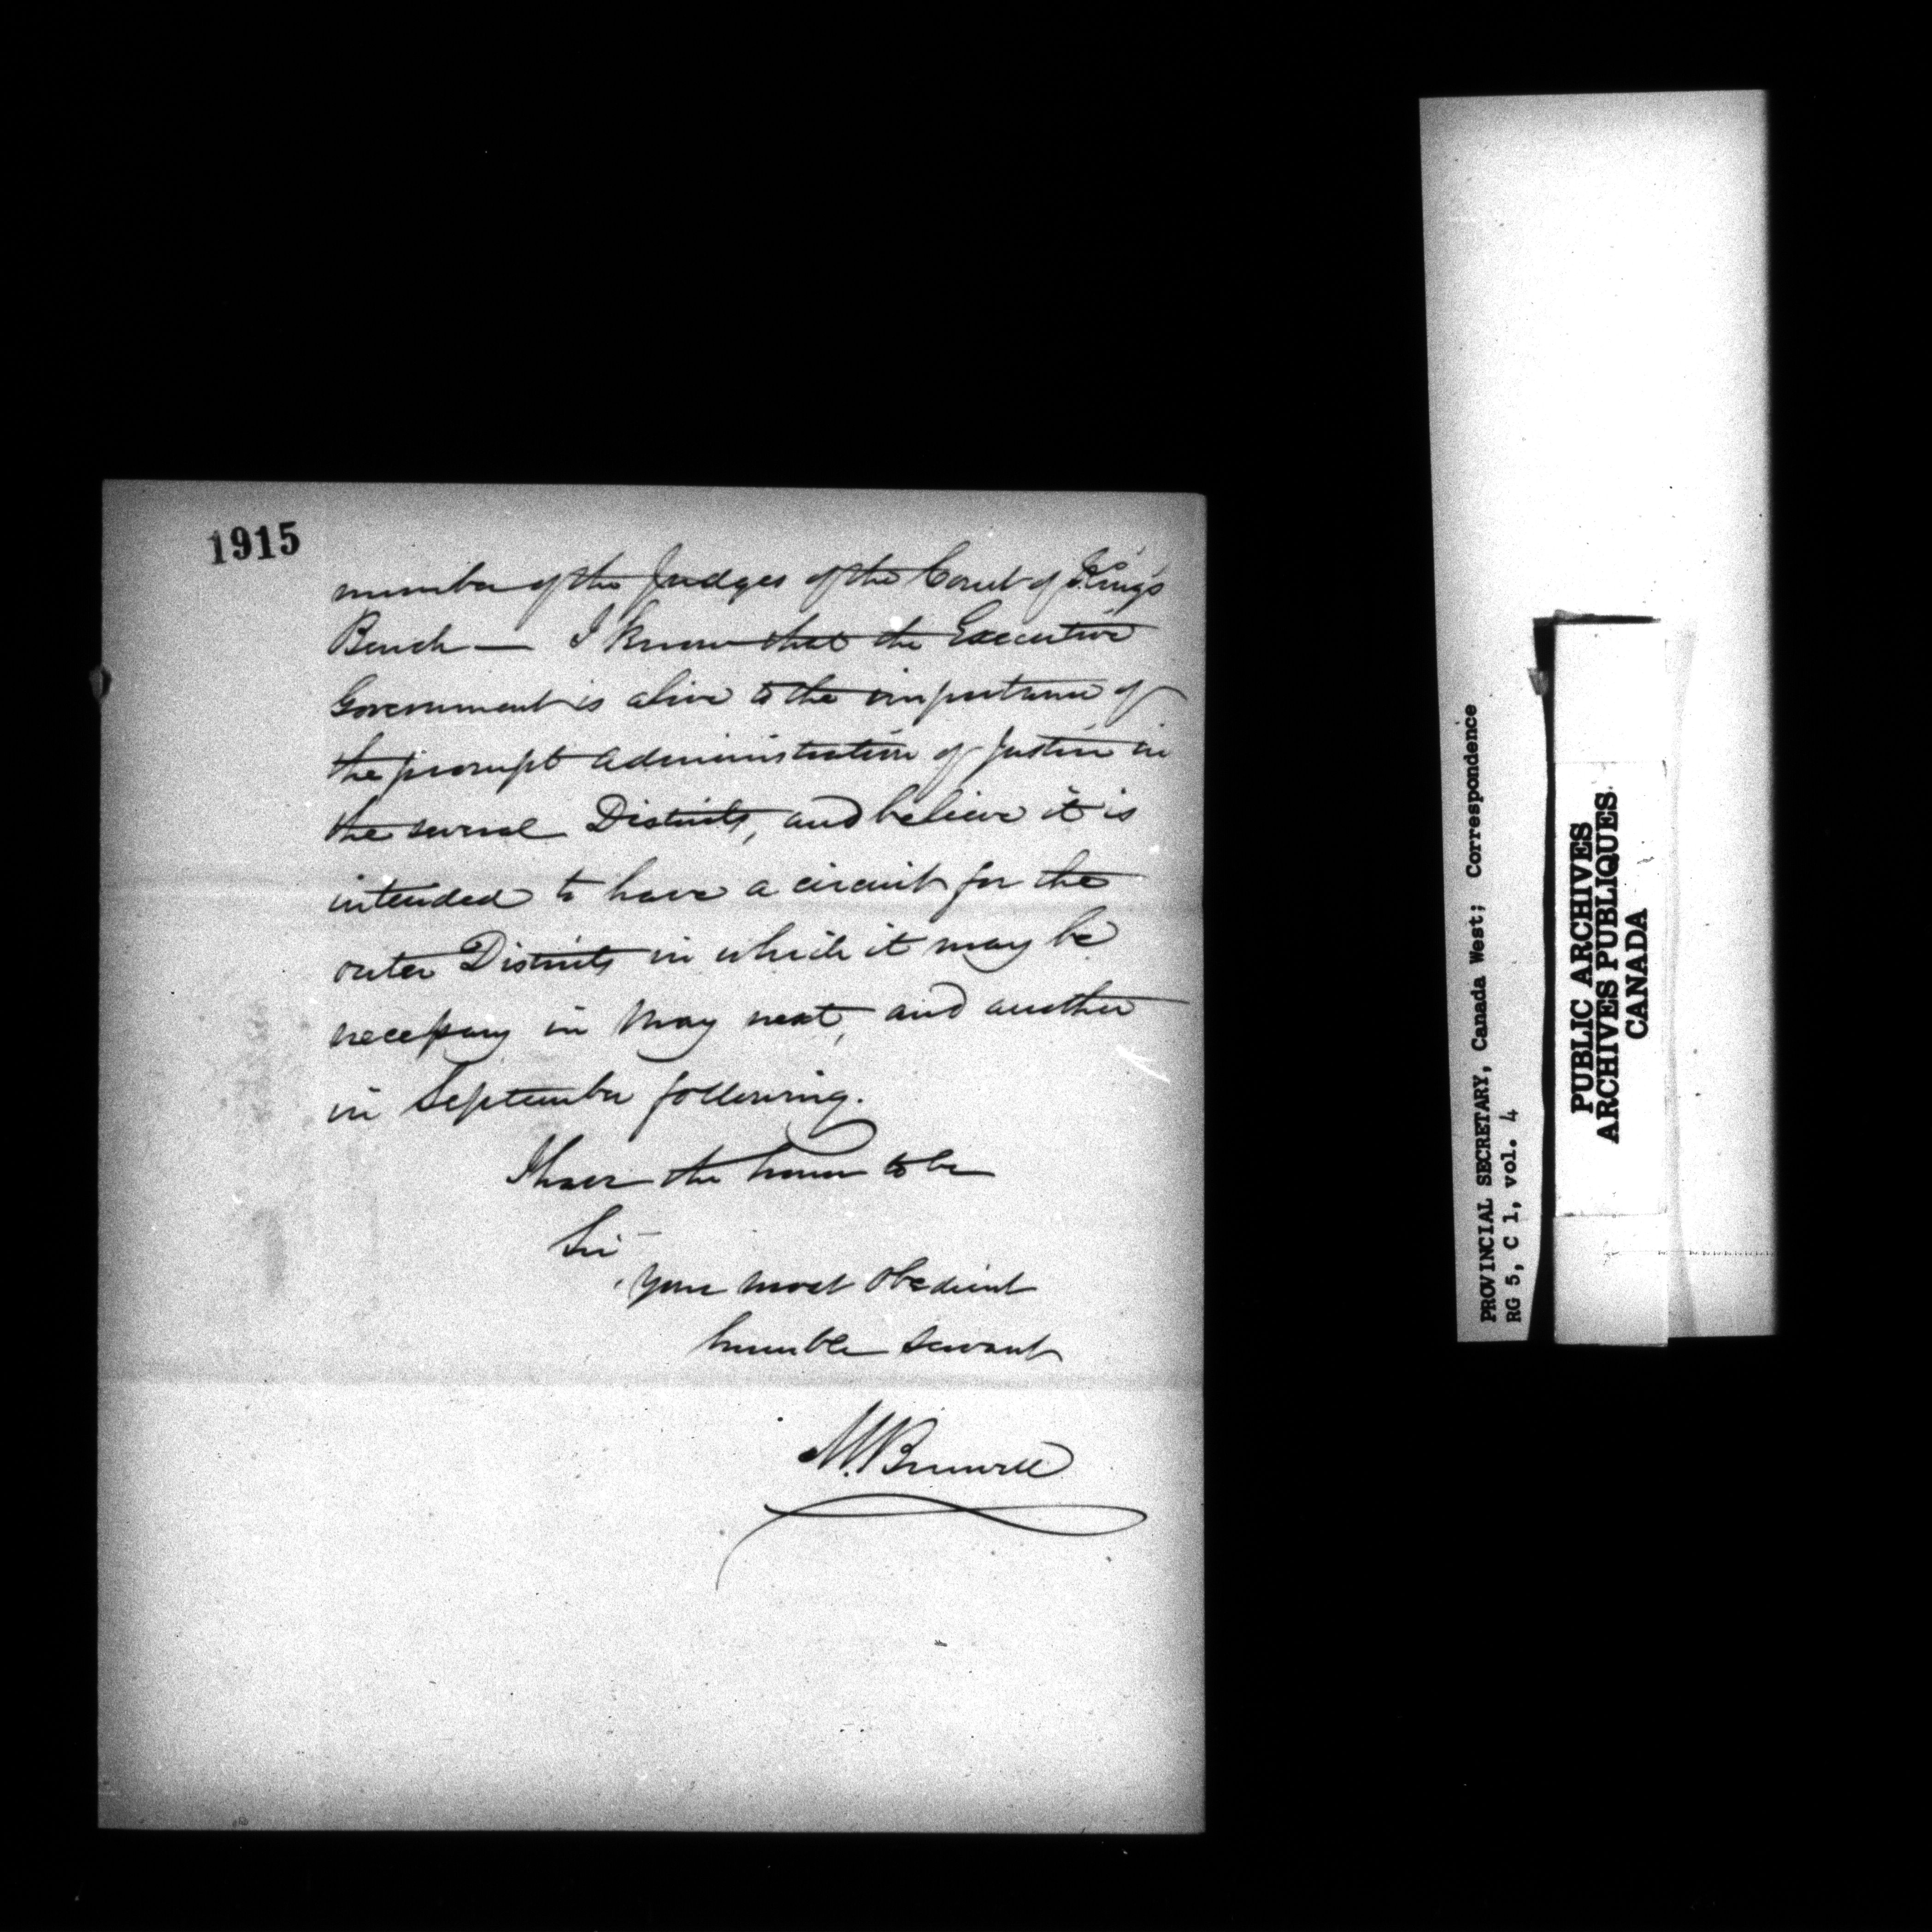 1915
number of the Judges of the Court of King's
Bench — I know that the Executive
Government is alive to the importance of
the prompt administration of Justice in
the several Districts, and believe it is
intended to have a circuit for the
outer Districts in which it may be
necessary in May next, and another
in September following.
I have the honor to be
Sir
your most obedient
humble servant
M. Burwell
PROVINCIAL SECRETARY, Canada West; Correspondence
RG 5, C 1, vol. 4
PUBLIC ARCHIVES
ARCHIVES PUBLIQUES
CANADA